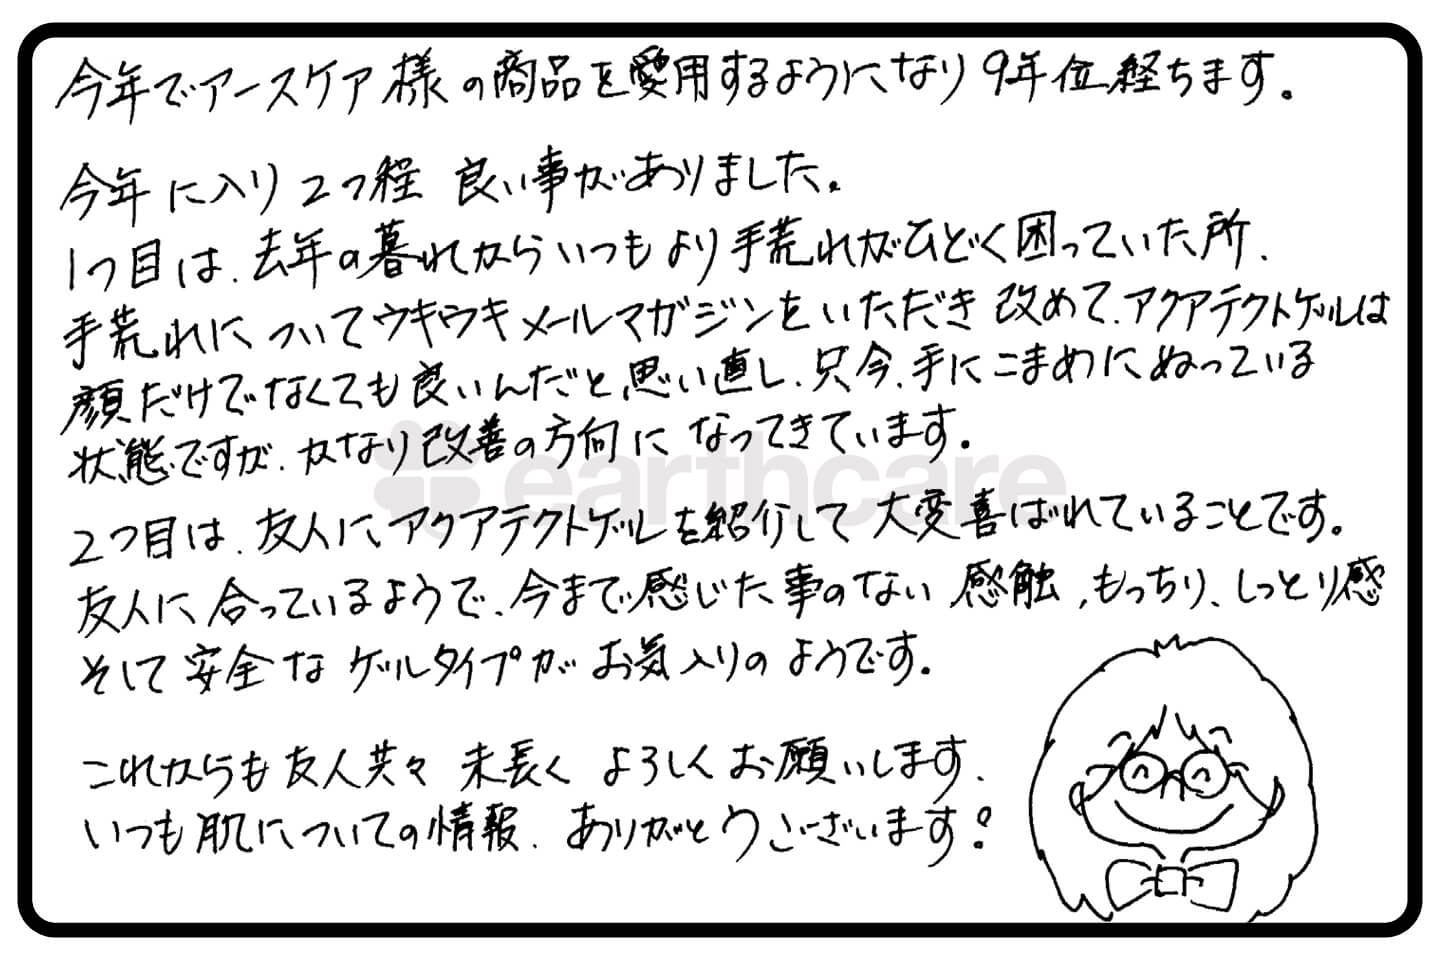 今年でアースケア様の商品を愛用するようになり9年位経ちます。
今年に入り2つ程 良い事がありました。
1つ目は、去年の暮れからいつもより手荒れがひどく困っていた所、
手荒れについてウキウキメールマガジンをいただき 改めて、アクアテクトゲルは
顔だけでなくても良いんだと思い直し、只今、手にこまめにぬっている
状態ですが、かなり改善の方向になってきています。
earthcare
2つ目は、友人に、アクアテクトゲルを紹介して 大変喜ばれていることです。
友人に合っているようで、今まで感じた事のない、感触、もっちり、しっとり感
そして安全な ゲルタイプが お気入りのようです。
これからも友人共々 末長く よろしくお願いします。
いつも肌についての情報、ありがとうございます!